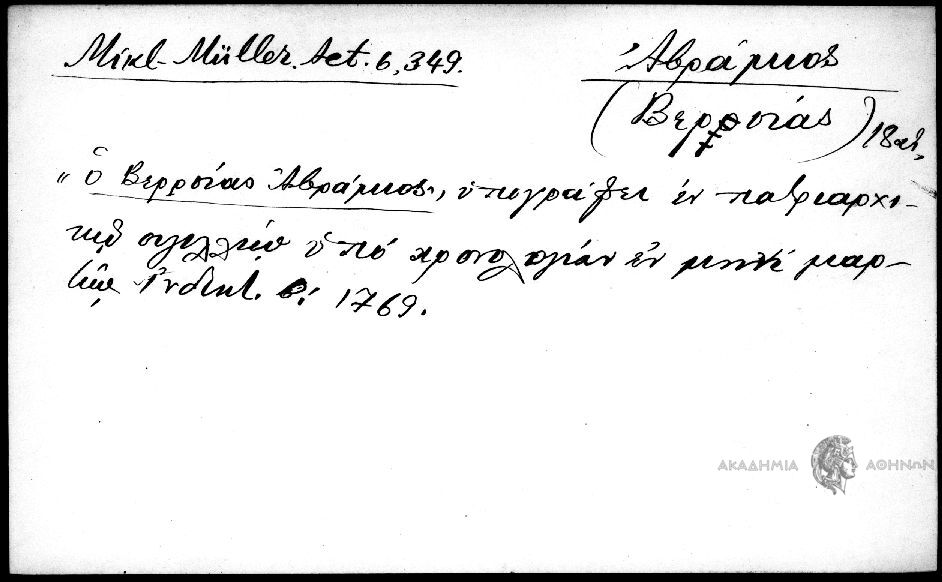 Mikl-Müller. Act. 6, 349.
Ἀβράμιος
(Βερροίας) 18 αἰ.
"ὁ Βερροίας Ἀβράμιος", ὑπογράφει ἐν πατριαρχι-
κῷ σιγιλλίῳ ὑπὸ χρονολογίαν ἐν μηνὶ μαρ-
τίῳ Ἰνδικτ. β! 1769.
ΑΚΑΔΗΜΙΑ ΑΘΗΝΩΝ